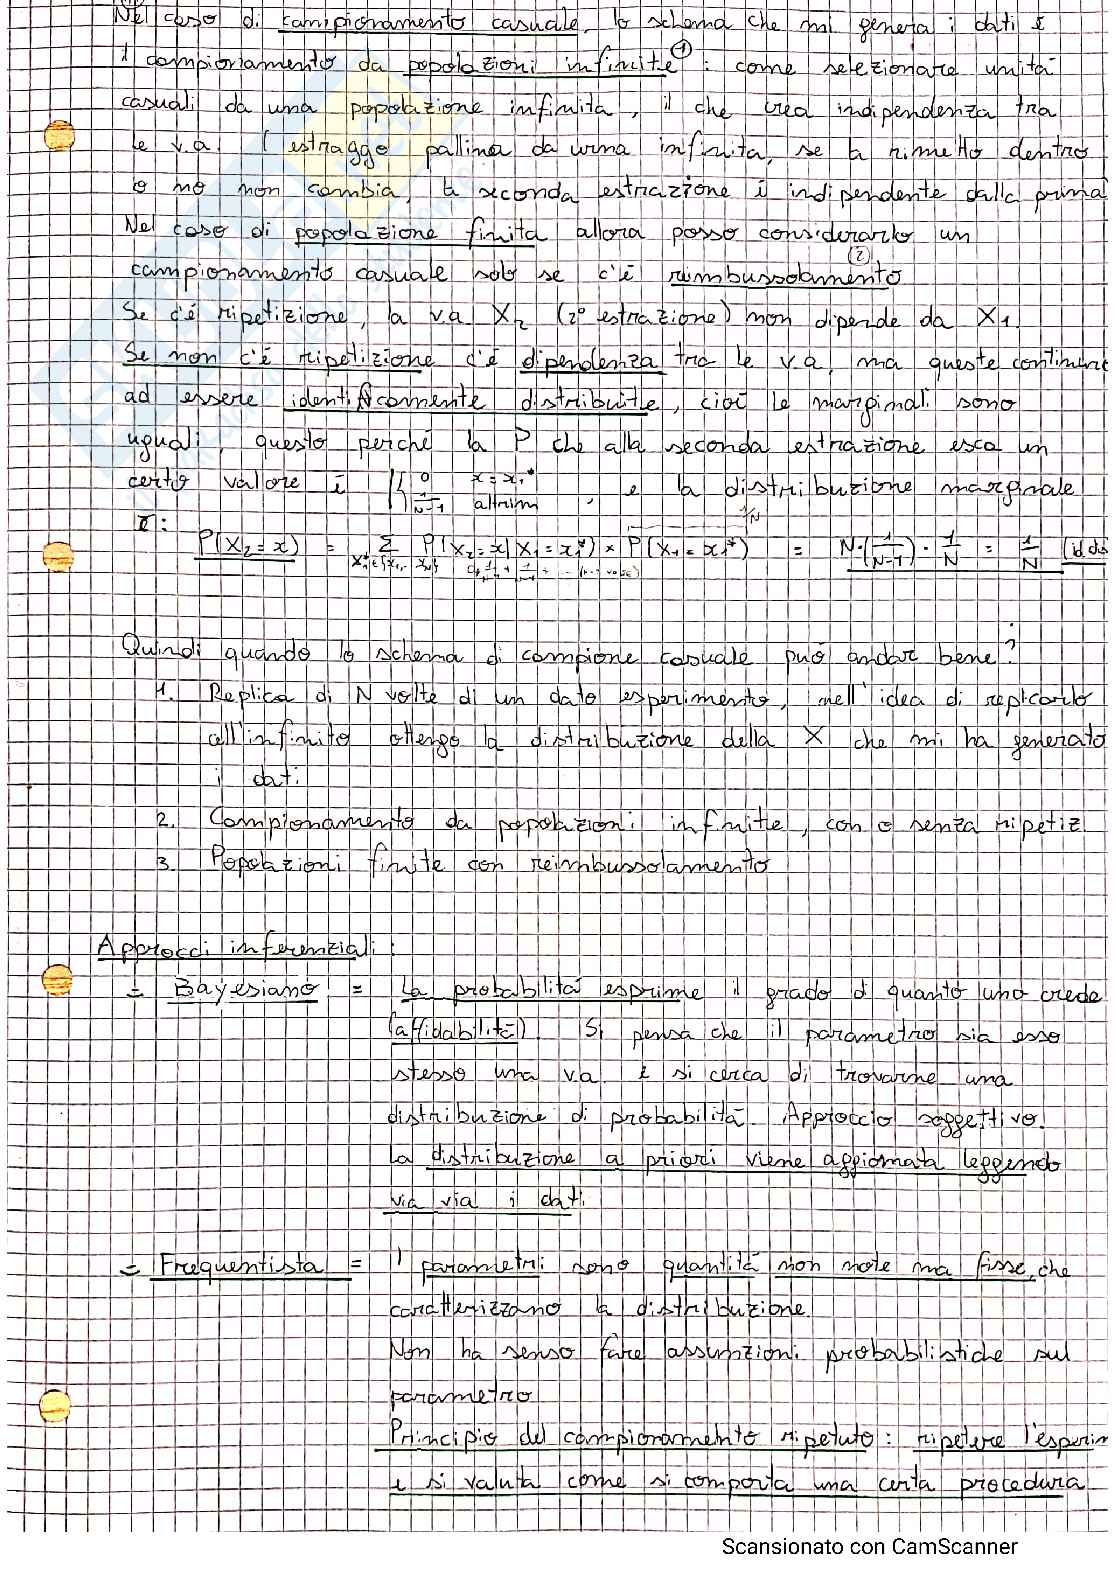 Nel caso di campionamento casuale, lo schema che mi genera i dati è
il campionamento da popolazioni infinite ① : come selezionare unità
casuali da una popolazione infinita, il che crea indipendenza tra
le v.a. (estraggo pallina da urna infinita, se la rimetto dentro
o no non cambia, la seconda estrazione è indipendente dalla prima
Nel caso di popolazione finita allora posso considerarlo un
campionamento casuale solo se c'è reimbussolamento ②
Se c'è ripetizione, la v.a. X₂ (2° estrazione) non dipende da X₁.
Se non c'è ripetizione c'è dipendenza tra le v.a, ma queste continuano
ad essere identificamente distribuite, cioè le marginali sono
uguali, questo perché la P che alla seconda estrazione esca un
certo valore è { 0 x = x₁* ; 1/(N-1) altrim , e la distribuzione marginale
è:
P(X₂=x) = Σ P(X₂=x|X₁=x₁*) × P(X₁=x₁*) = N·(1/(N-1))·1/N = 1/N (id. dis
Quindi quando lo schema di campione casuale può andar bene?
1. Replica di N volte di un dato esperimento, nell'idea di replicarlo
all'infinito ottengo la distribuzione della X che mi ha generato
i dati
2. Campionamento da popolazioni infinite, con o senza ripetiz
3. Popolazioni finite con reimbussolamento
Approcci inferenziali:
- Bayesiano = La probabilità esprime il grado di quanto uno crede
(affidabilità). Si pensa che il parametro sia esso
stesso una v.a. e si cerca di trovarne una
distribuzione di probabilità. Approccio soggettivo.
La distribuzione a priori viene aggiornata leggendo
via via i dati.
- Frequentista = I parametri sono quantità non note ma fisse, che
caratterizzano la distribuzione.
Non ha senso fare assunzioni probabilistiche sul
parametro
Principio del campionamento ripetuto: ripetere l'esperim
e si valuta come si comporta una certa procedura
Scansionato con CamScanner